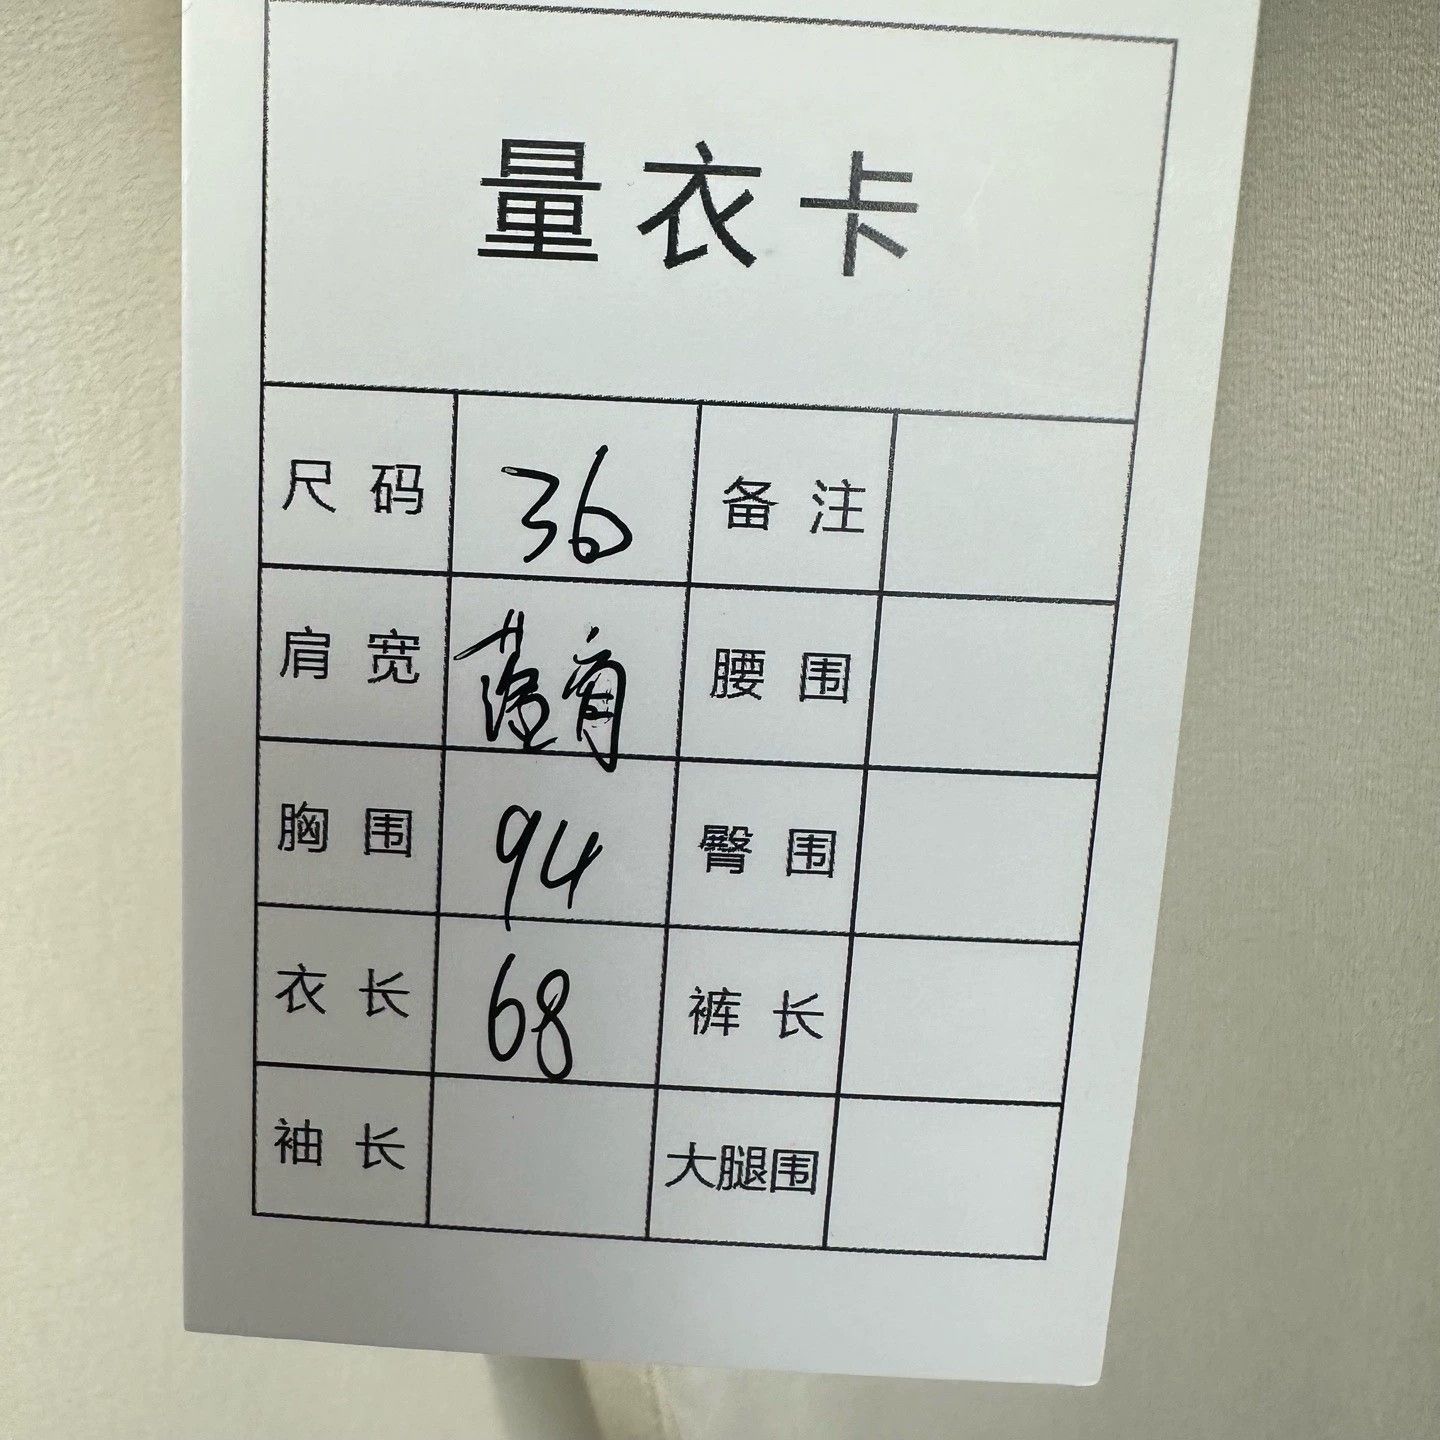 量衣卡
尺码 36 备注
肩宽 落肩 腰围
胸围 94 臀围
衣长 68 裤长
袖长 大腿围